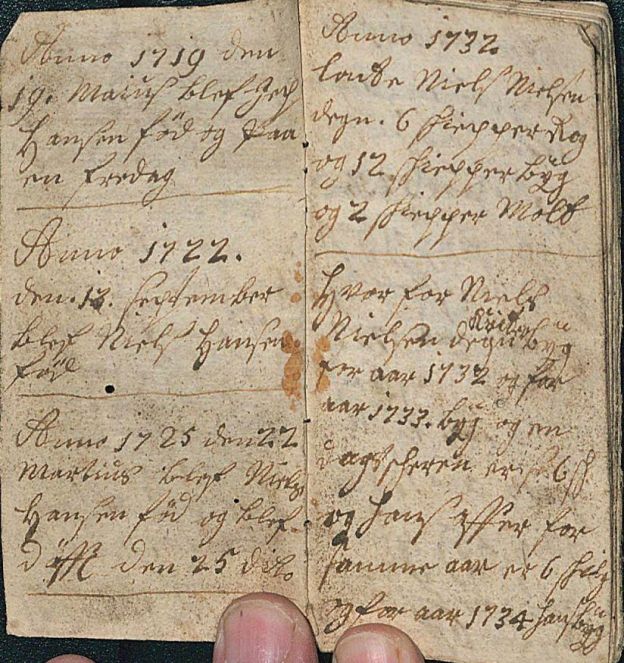 Anno 1719 den
19. Maius blef Jep
Hansen föd og paa
en fredag
Anno 1722.
den 13. September
blef Niels Hansen
föd
Anno 1725 den 22
Martius blef Niels
Hansen föd og blef
döfft den 25 dito
Anno 1732
lante Niels Nielsen
degn. 6 skiepper Rog
og 12 skiepper byg
og 2 skiepper Malt
Hvor for Niels
Nielsen degn byg
for aar 1732 og for
aar 1733. byg og en
er 6
og hans offer for
samme aar er 6
og for aar 1734 hans byg